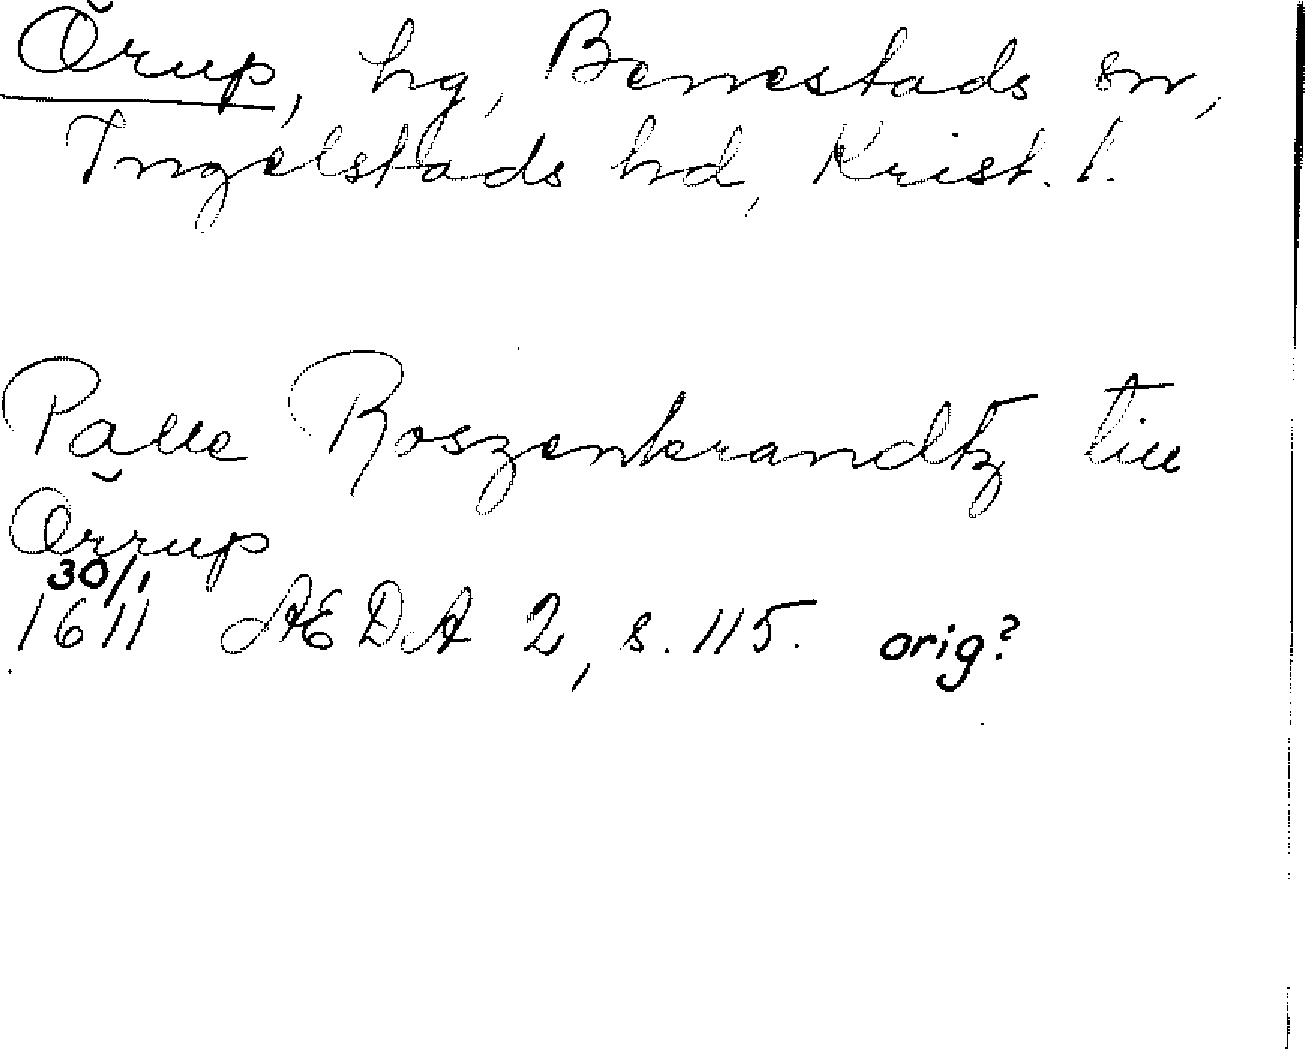 Örup, hg, Benestads sn,
Ingelstads hd, Krist. l.
Palle Roszenkrandtz till
Örrup
30/1
1611 AEDA 2, s. 115. orig?